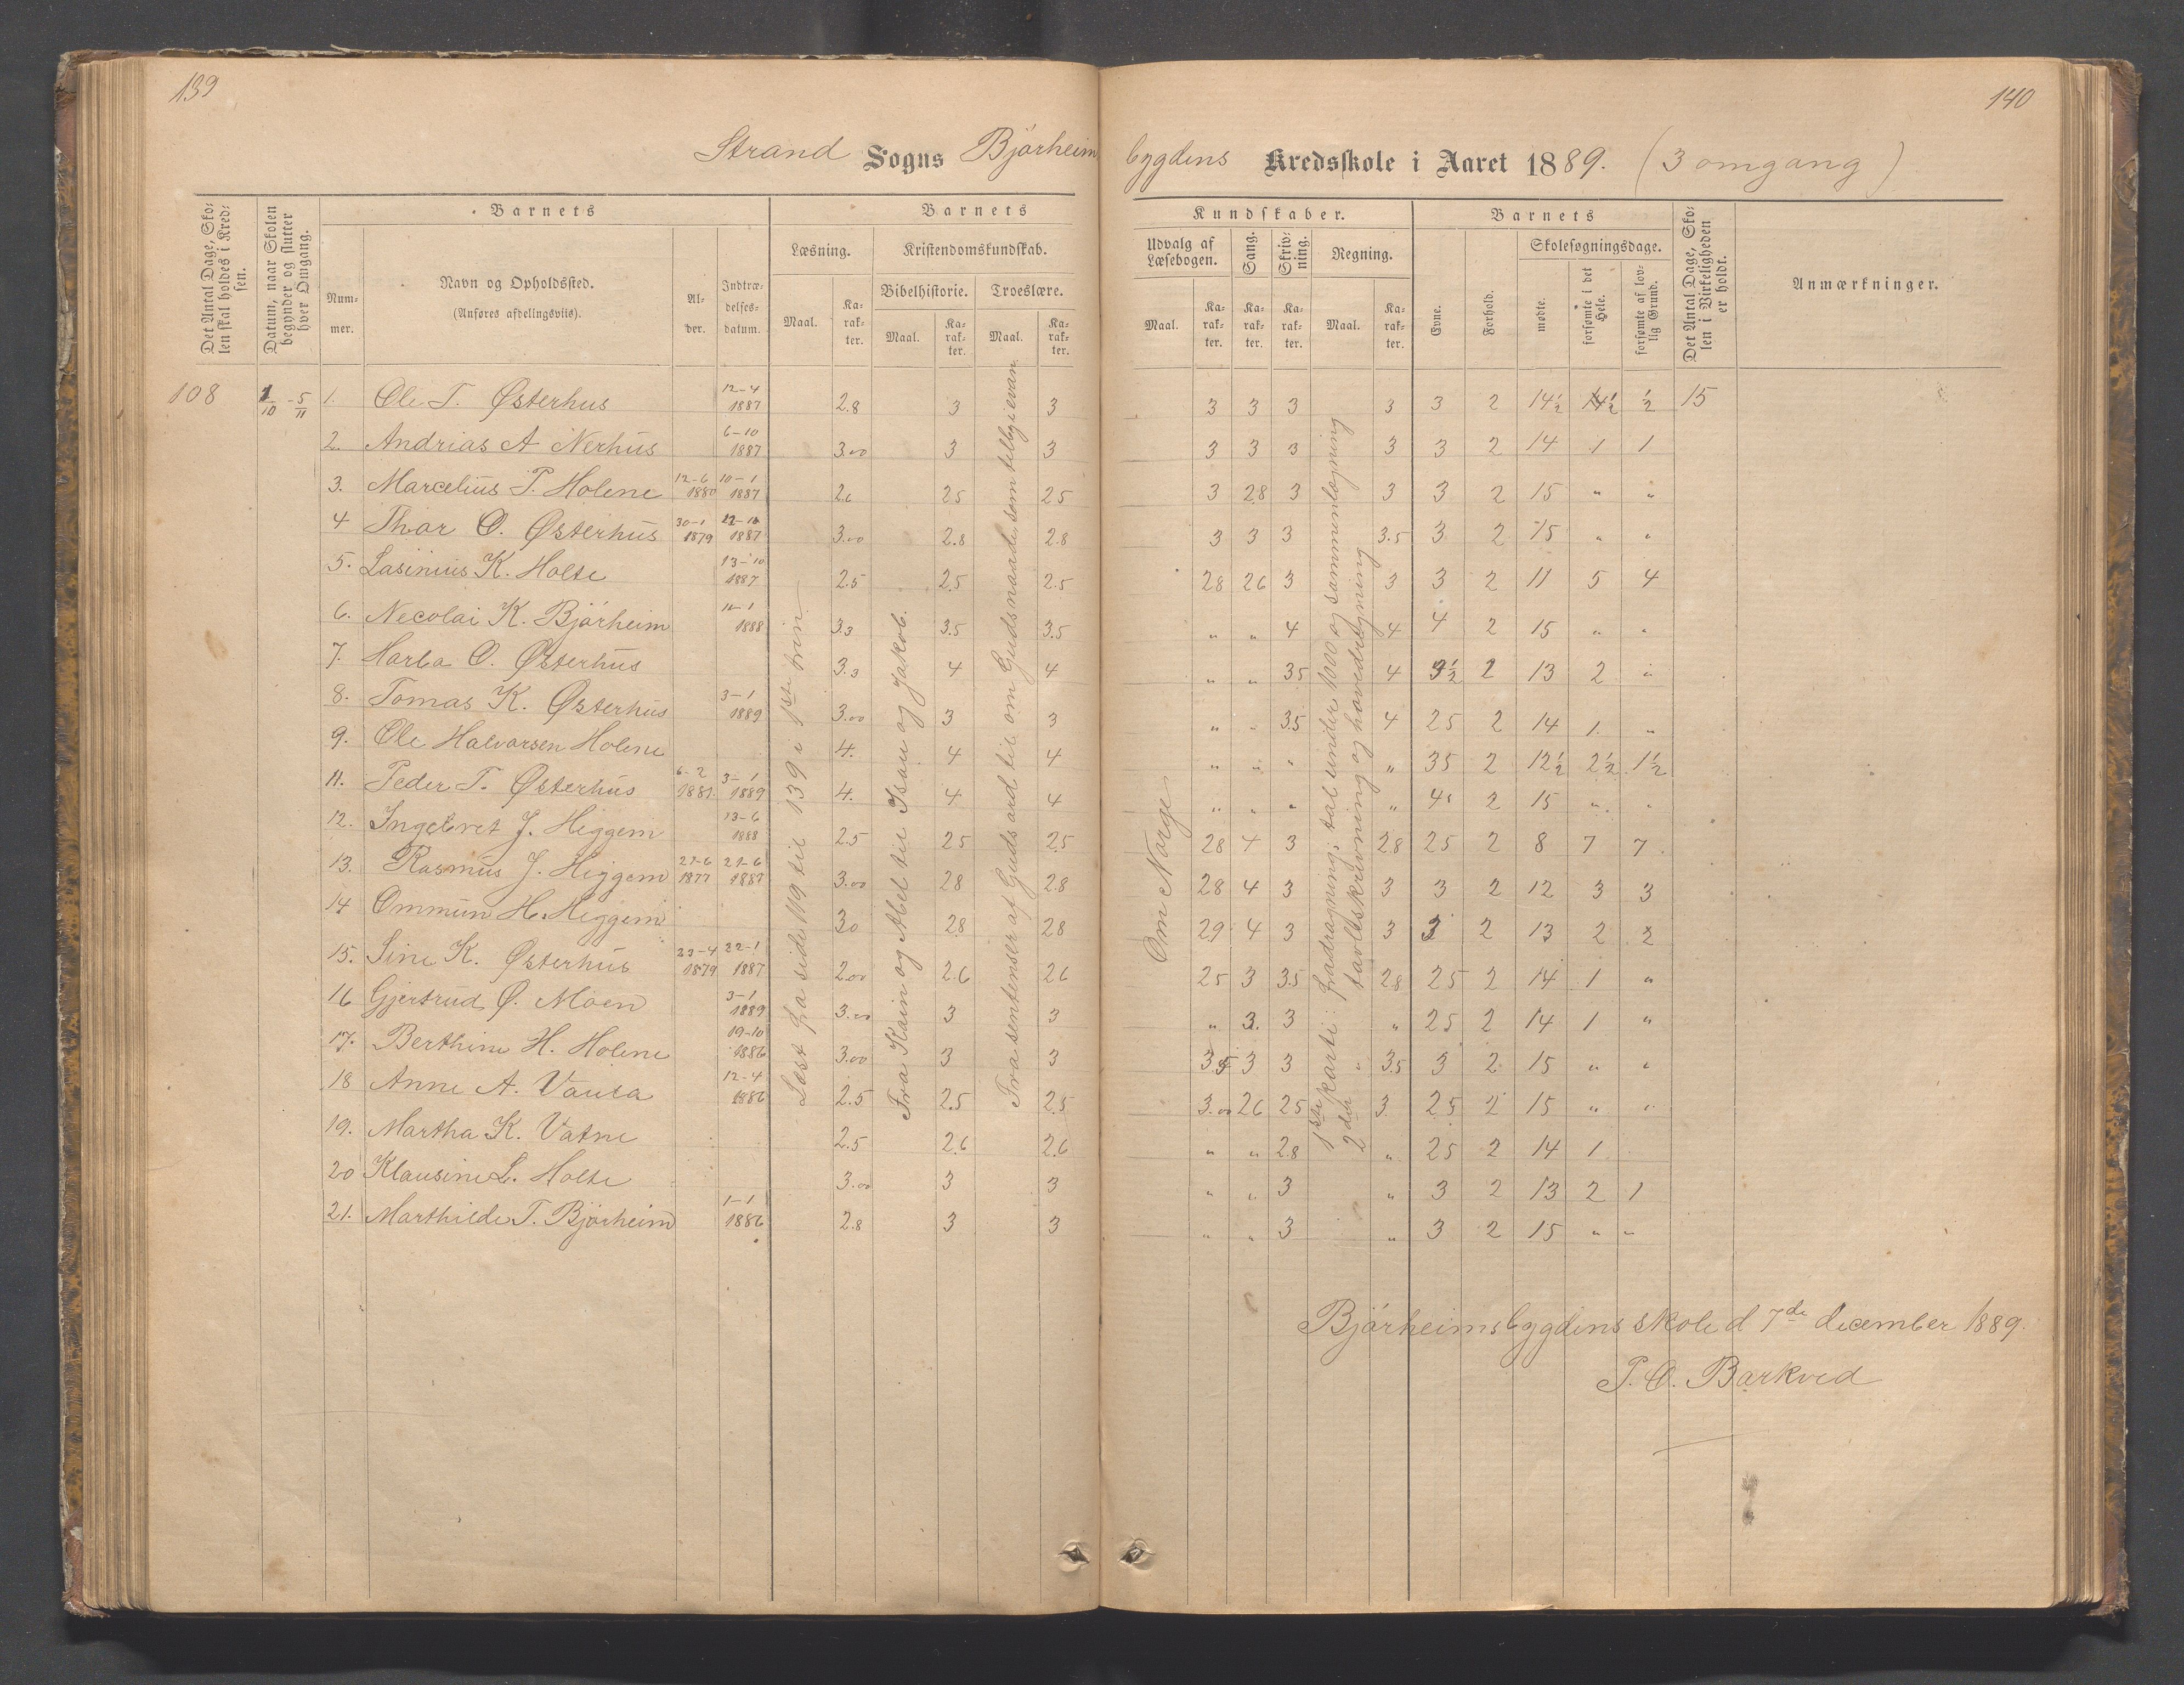 139
140
Strand Sogns Bjørheims bygdens Kredsskole i Aaret 1889. (3 omgang)
Det Antal Dage, Skolen skal holdes i Kredsen.
Datum, naar Skolen begynder og slutter hver Omgang.
Barnets
Nummer.
Navn og Opholdssted.
(Anføres afdelingsviis).
Alder.
Indtrædelses-datum.
Barnets
Læsning.
Maal.
Karakter.
Kristendomskundskab.
Bibelhistorie.
Maal.
Karakter.
Troeslære.
Maal.
Karakter.
Kundskaber.
Udvalg af Læsebogen.
Maal.
Karakter.
Sang.
Karakter.
Skrivning.
Karakter.
Regning.
Maal.
Karakter.
Barnets
Evne.
Forhold.
Skolesøgningsdage.
mødte.
forsømte i det Hele.
forsømte af lovlig Grund.
Det Antal Dage, Skolen i Virkeligheden er holdt.
Anmærkninger.
108 1/10 - 5/11 1. Ole T. Østerhus 12-4 1887 2.8 3 3 3 3 3 3 3 2 14½ ½ ½ 15
2. Andrias A Nerhus 6-10 1887 3.00 3 3 3 3 3 3 3 2 14 1 1
3. Marcelius T. Holene 12-6 1880 10-1 1887 2.6 25 25 3 28 3 3 3 2 15 " "
4 Thor O. Østerhus 30-1 1879 1887 3.00 2.8 2.8 3 3 3 3.5 3 2 15 " "
5. Lasinius K. Holte 13-10 1887 2.5 2.5 2.5 28 26 3 3 3 2 11 5 4
6. Necolai K. Bjørheim 11-1 1888 3.3 3.5 3.5 " " 4 4 4 2 15 " "
7. Harba O. Østerhus 3.3 4 4 " " 35 4 3½ 2 13 2 "
8. Tomas K. Østerhus 3-1 1889 3.00 3 3 " " 3.5 4 25 2 14 1. "
9. Ole Halvorsen Holene 4. 4 4 " " " " 35 2 12½ 2½ 1½
11. Peder T. Østerhus 6-2 1881. 3-1 1889 4. 4 4 " " " " 4 2 15 " "
12. Ingebret J. Heggem 13-6 1888 2.5 25 25 28 4 3 28 25 2 8 7 7.
13. Rasmus J. Heggem 27-6 1877 27-6 1887 3.00 28 2.8 28 4 3 3 3 2 12 3 3
14 Ommun H. Heggem 30 28 28 29 4 3 3 3 2 13 2 2
15. Sine K. Østerhus 23-4 1879 22-1 1887 2.00 2.6 26 25 3 3.5 28 25 2 14 1 "
16 Gjertrud Ø. Moen 3-1 1889 3.00 3 3 " 3. 3 " 25 2 14 1 "
17. Berthine H. Holene 19-10 1886 3.00 3 3 3.5 3 3 " 3.5 3 2 15 " "
18 Anne A. Vaula 12-4 1886 2.5 2.5 2.5 3.00 26 25 3. 25 2 15 " "
19. Martha K. Vatne 2.5 2.6 2.6 " " 2.8 " 25 2 14 1
20 Klausine L. Holte 3.00 3 3 " " 3 " 3 2 13 2 1
21. Marthilde T. Bjørheim 1-1 1886 2.8 3 3 " " 3 " 3 2 15 " "
Læst fra side 119 til 139 i 1ste trin.
Fra Kain og Abel til Isau og Jakob.
Fra sentenser af Guds ord til om Guds naade som tilbyd i evan
Om Norge
1ste parti: fradragning; tal under 1000 og sammenlægning
2det " tavleskrivning og hovedregning
Bjørheimsbygdens skole d 7de december 1889.
P. O. Barkved